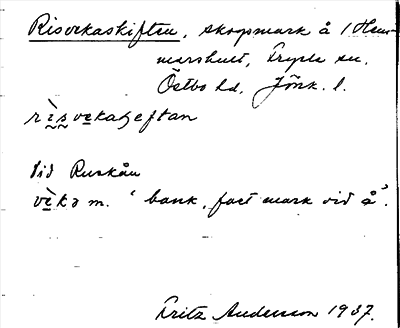 Risvekaskiften, skogsmark å 1 Hem-
marshult, Fryele sn.
Östbo hd, Jönk. l.
rìsvekaʃeftan
Vid Ruskån
vèka m. ‘bank, fast mark vid å’.
Fritz Andersson 1937.